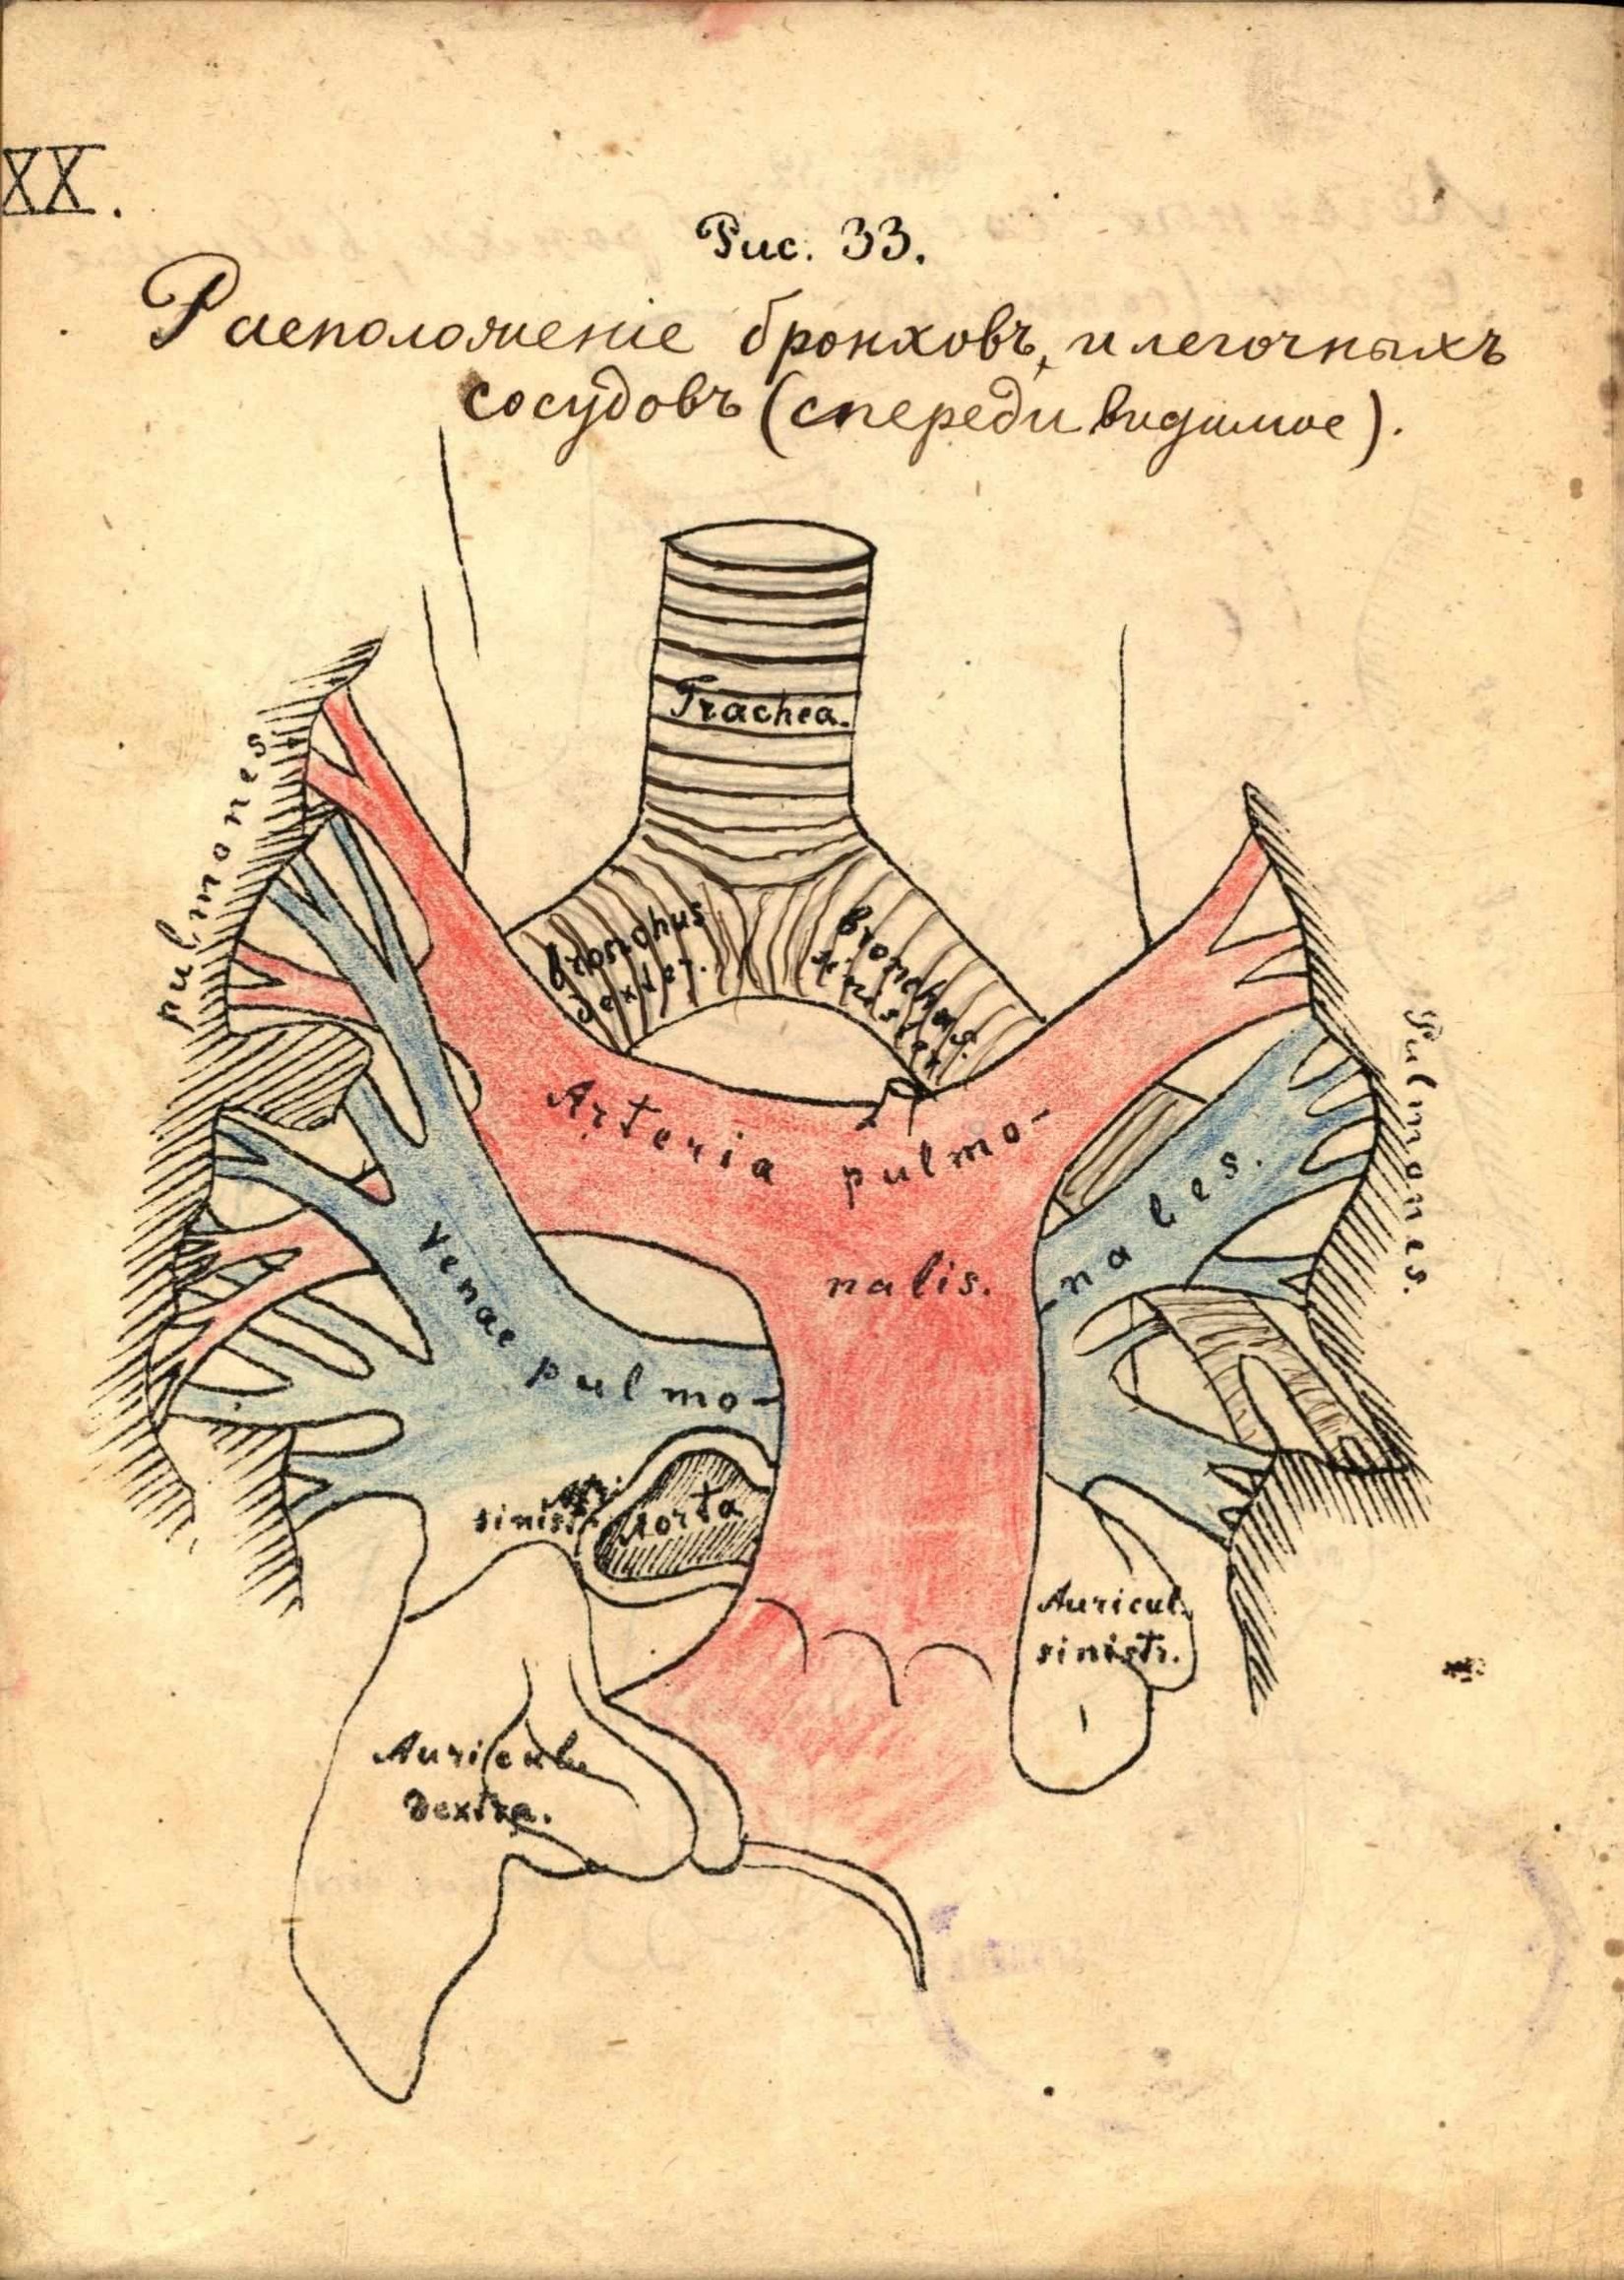 XX.
Рис. 33.
Расположеніе бронховъ, и легочныхъ
сосудовъ (спереди видимое).
Trachea.
pulmones
bronchus
dexter.
bronchus.
sinister
Pulmones.
Arteria pulmo-
nalis.
Venae pulmo-
-nales.
Atr.
sinistr.
Aorta
Auricul.
sinistr.
Auricula
dextra.